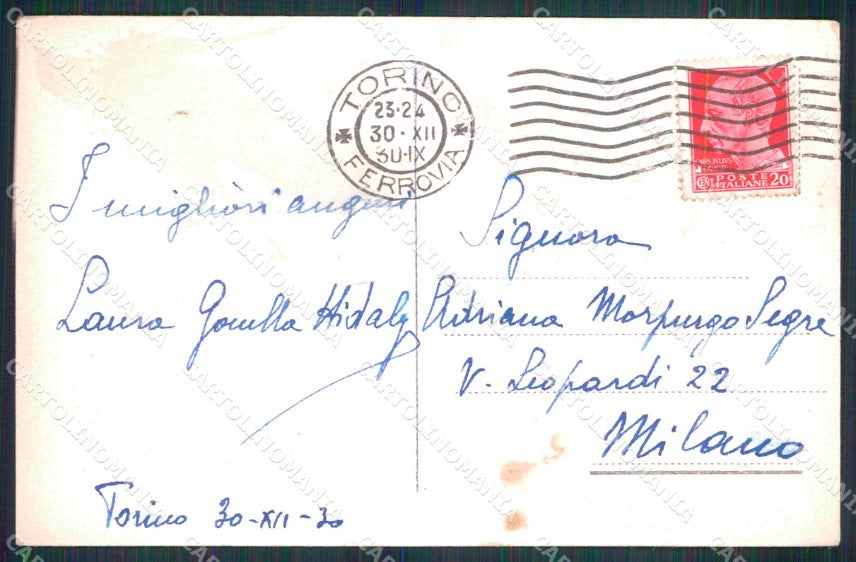 TORINO
23·24
30·XII
30·IX
FERROVIA
POSTE
CENT. ITALIANE 20
I migliori auguri
Laura Hidalg
Torino 30-XII-30
Signora
Adriana Morpurgo Segre
V. Leopardi 22
Milano
CARTOLINOMANIA